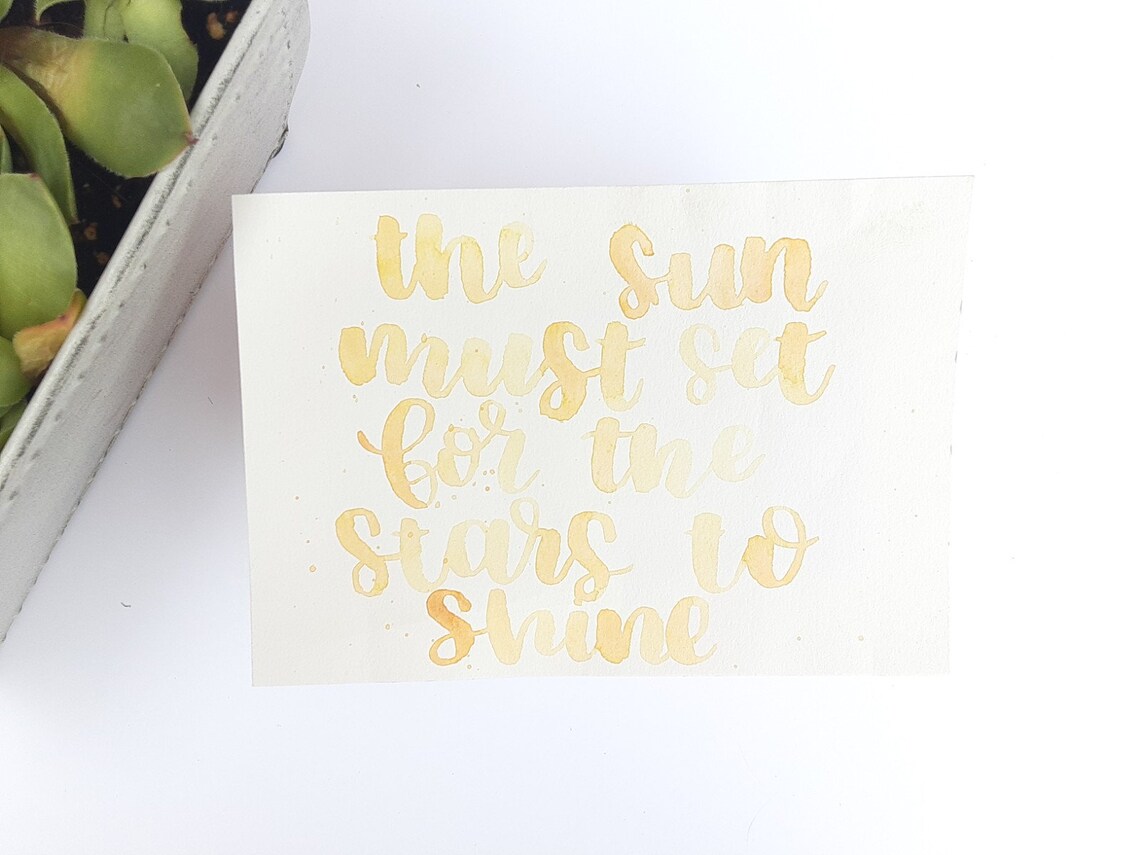 the sun
must set
for the
stars to
shine